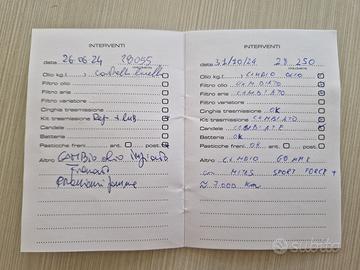 INTERVENTI
data 26.06.24 28055
Olio kg./. Controllo livello
Filtro olio
Filtro aria
Filtro variatore
Cinghia trasmissione
Kit trasmissione Reg. + lub.
Candele
Batteria
Pasticche freni ant. post.
Altro CAMBIO olio impianto
Frenante
INTERVENTI
data 31/10/24 28 250
Olio kg./. CAMBIO OLIO
Filtro olio CAMBIATO
Filtro aria CAMBIATO
Filtro variatore
Cinghia trasmissione OK
Kit trasmissione CAMBIATO
Candele CAMBIATE
Batteria OK
Pasticche freni OK ant. post.
Altro CAMBIO GOMME
CON MITAS SPORT FORCE +
≈ 7.000 Km
subito